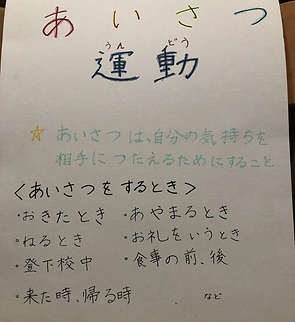 あいさつ
うんどう
運動
☆あいさつは、自分の気持ちを
相手につたえるためにすること
<あいさつをするとき>
・おきたとき ・あやまるとき
・ねるとき ・お礼をいうとき
・登下校中 ・食事の前、後
・来た時、帰る時 など